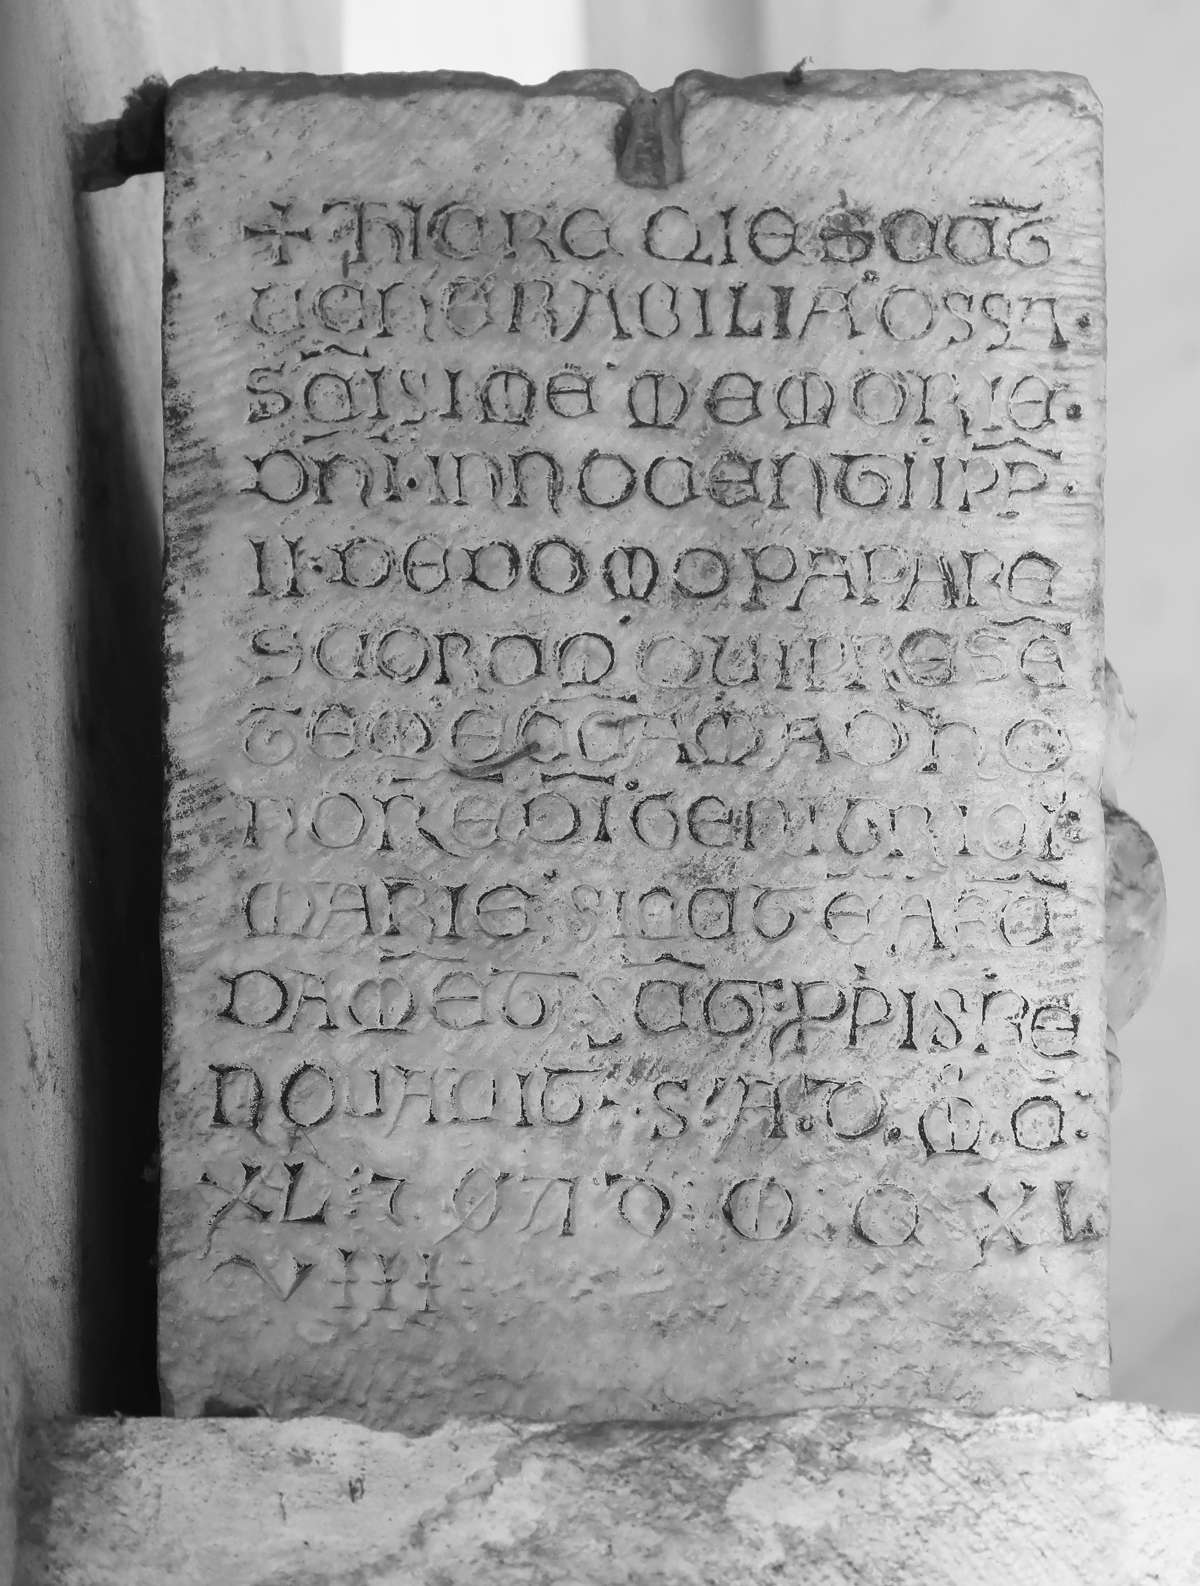 + HIC REQIESCĀT
VENERABILIA OSSA·
SĀISIME MEMORIE·
DN̄I·INNOCENTII PP̄·
II·DE DOMO PAPARE
SCORAD QUI PRESĒ
TEM ECC̄AM AD HO
NOR̄E DĪ GENITRICI·
MARIE SICUT Ē A FŪ
DAM̄ETIS CŪT PP̄IS RE
NOVAVIT·S·A·D·M·C·
XL·7 ONI·D·M·C·XL
VIII